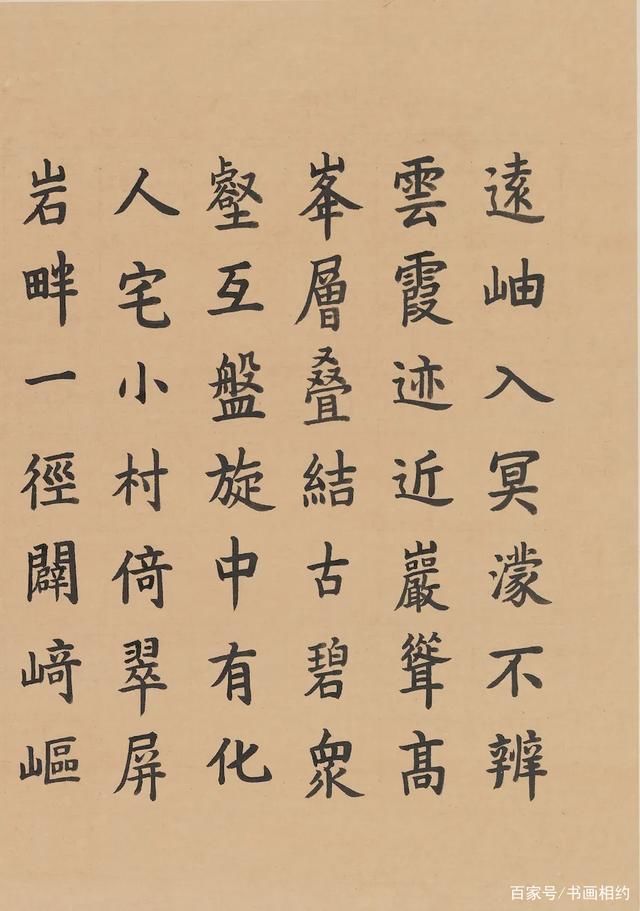 遠岫入冥濛不辨
雲霞迹近巖聳高
峯層叠結古碧衆
壑互盤旋中有化
人宅小村倚翠屏
岩畔一徑闢崎嶇
百家号/书画相约